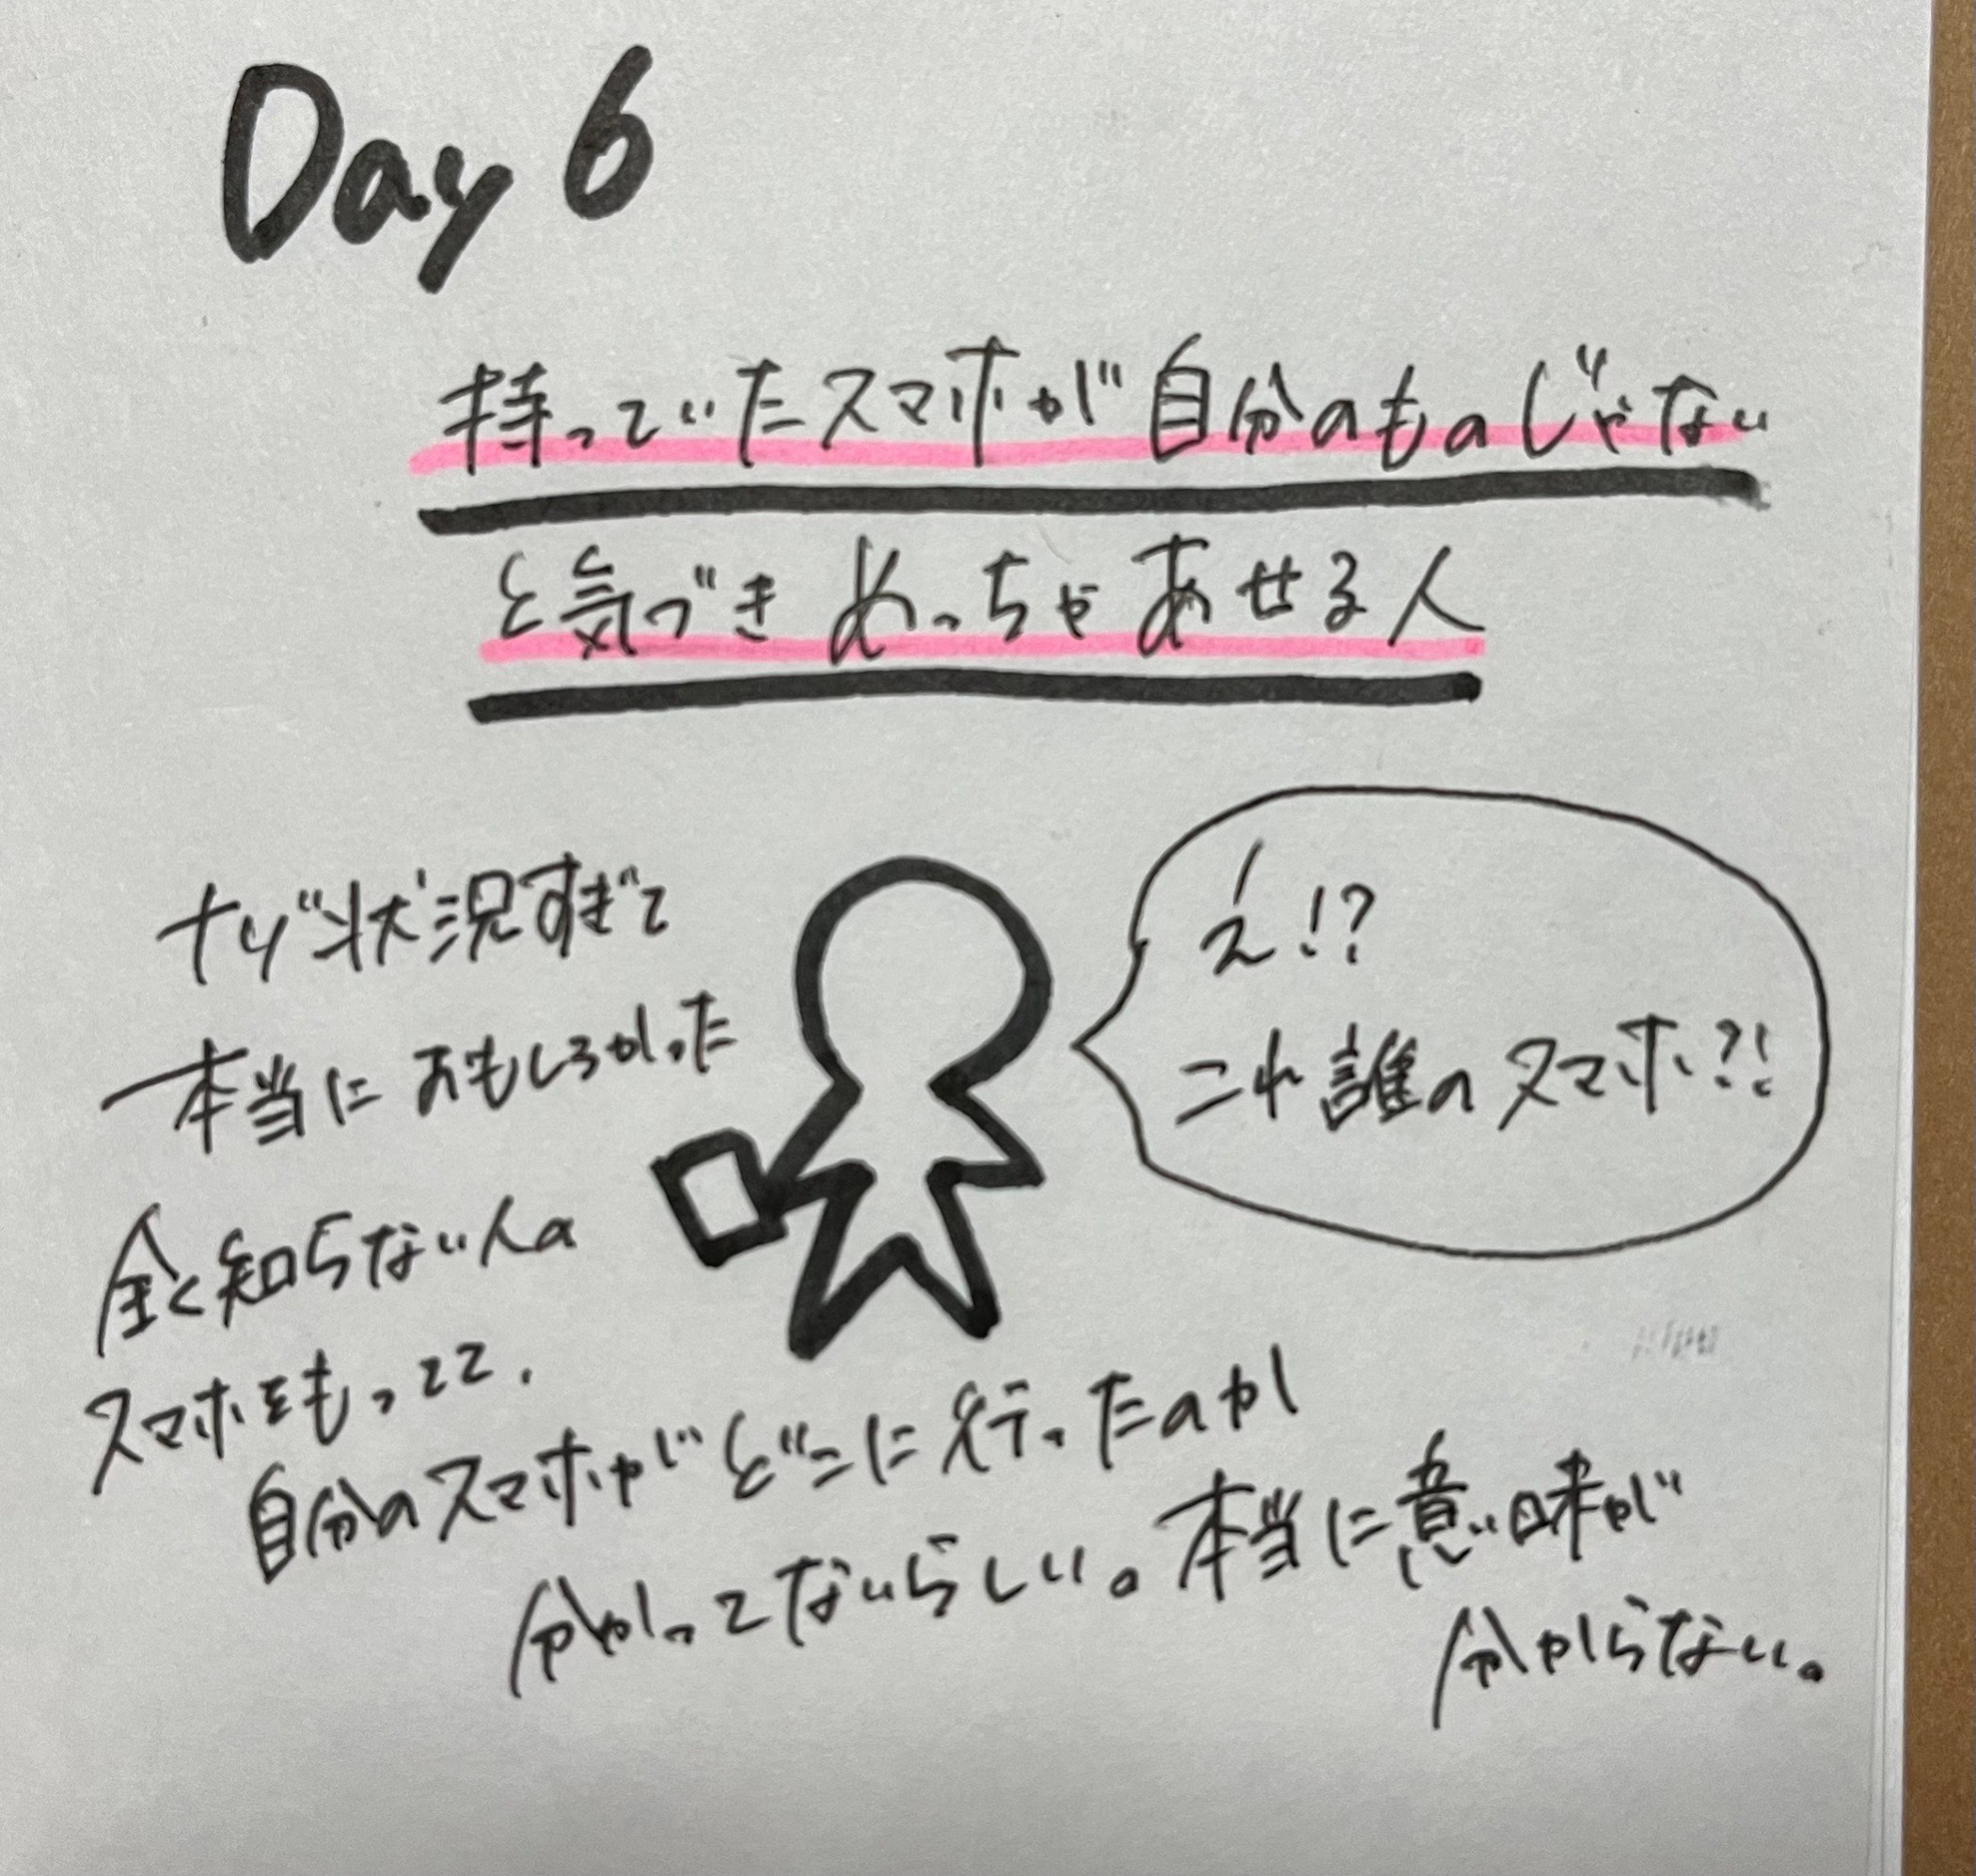 Day 6
持っていたスマホが自分のものじゃない
と気づきめっちゃあせる人
え!?
これ誰のスマホ?!
ナゾ状況すぎて
本当におもしろかった
全く知らない人の
スマホをもってて、
自分のスマホがどこに行ったのか
分かってないらしい。本当に意味が
分からない。